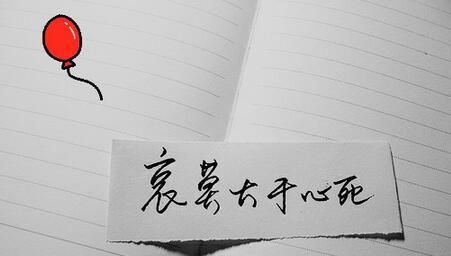 哀莫大于心死